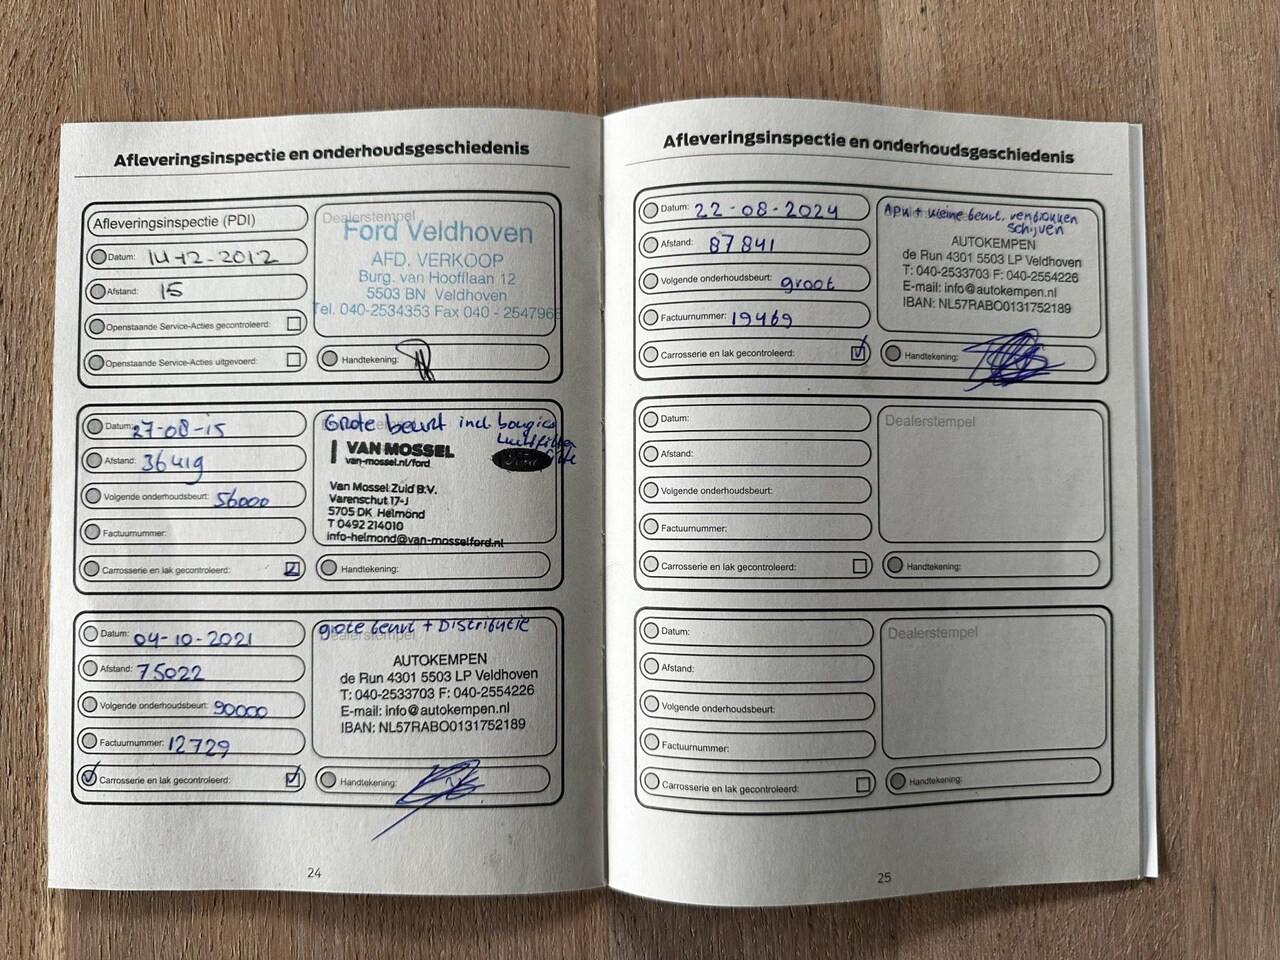 Afleveringsinspectie en onderhoudsgeschiedenis
Afleveringsinspectie (PDI)
Datum: 14-12-2012
Afstand: 15
Openstaande Service-Acties gecontroleerd:
Openstaande Service-Acties uitgevoerd:
Dealerstempel
Ford Veldhoven
AFD. VERKOOP
Burg. van Hoofflaan 12
5503 BN Veldhoven
Tel. 040-2534353 Fax 040 - 2547968
Handtekening:
Datum: 27-08-15
Afstand: 36419
Volgende onderhoudsbeurt: 56000
Factuurnummer:
Carrosserie en lak gecontroleerd:
Grote beurt incl. bougies
luchtfilter
VAN MOSSEL
van-mossel.nl/ford
Van Mossel Zuid B.V.
Varenschut 17-J
5705 DK Helmond
T 0492 214010
info-helmond@van-mosselford.nl
Handtekening:
Datum: 04-10-2021
Afstand: 75022
Volgende onderhoudsbeurt: 90000
Factuurnummer: 12729
Carrosserie en lak gecontroleerd:
grote beurt + Distributie
Dealerstempel
AUTOKEMPEN
de Run 4301 5503 LP Veldhoven
T: 040-2533703 F: 040-2554226
E-mail: info@autokempen.nl
IBAN: NL57RABO0131752189
Handtekening:
24
Afleveringsinspectie en onderhoudsgeschiedenis
Datum: 22-08-2024
Afstand: 87841
Volgende onderhoudsbeurt: groot
Factuurnummer: 19469
Carrosserie en lak gecontroleerd:
APK + kleine beurt, remblokken
schijven
AUTOKEMPEN
de Run 4301 5503 LP Veldhoven
T: 040-2533703 F: 040-2554226
E-mail: info@autokempen.nl
IBAN: NL57RABO0131752189
Handtekening:
Datum:
Afstand:
Volgende onderhoudsbeurt:
Factuurnummer:
Carrosserie en lak gecontroleerd:
Dealerstempel
Handtekening:
Datum:
Afstand:
Volgende onderhoudsbeurt:
Factuurnummer:
Carrosserie en lak gecontroleerd:
Dealerstempel
Handtekening:
25